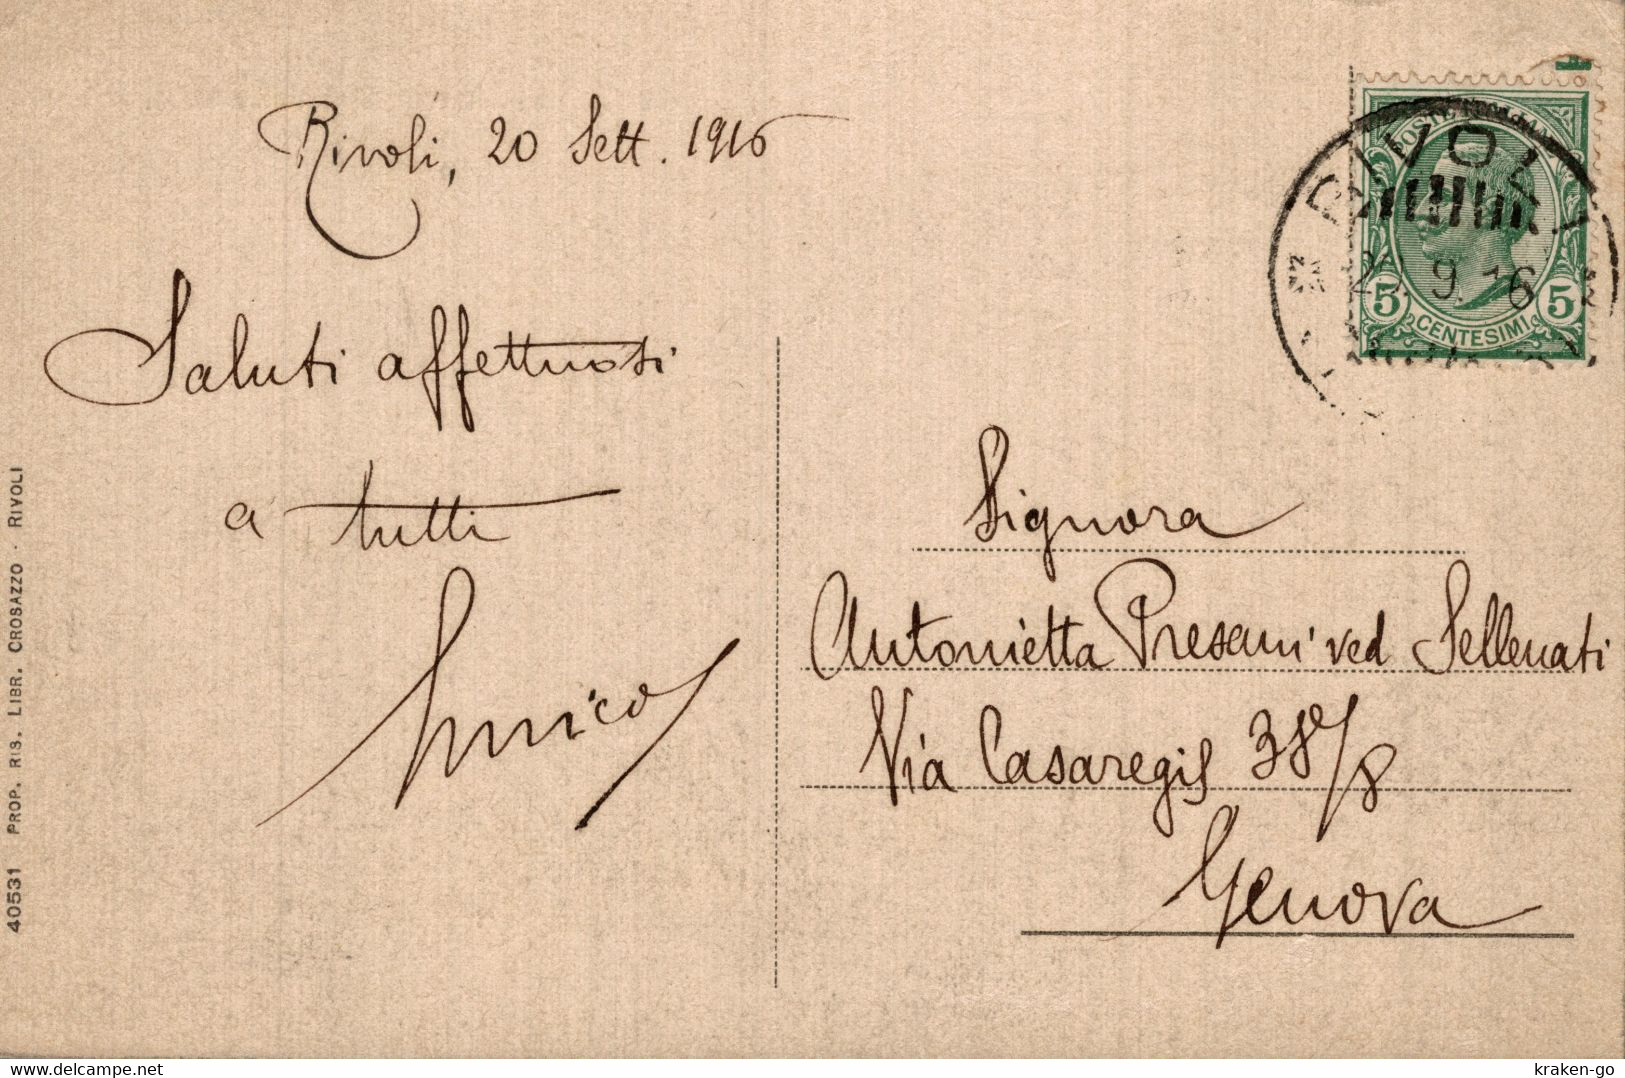 Rivoli, 20 Sett. 1916
Saluti affettuosi
a tutti
Enrico
40531 PROP. RIS. LIBR. CROSAZZO - RIVOLI
POSTE ITALIANE
5 5
CENTESIMI
RIVOLI
9. 16
Signora
Antonietta Presani ved Sellenati
Via Casaregis 38/8
Genova
delcampe.net
kraken-go